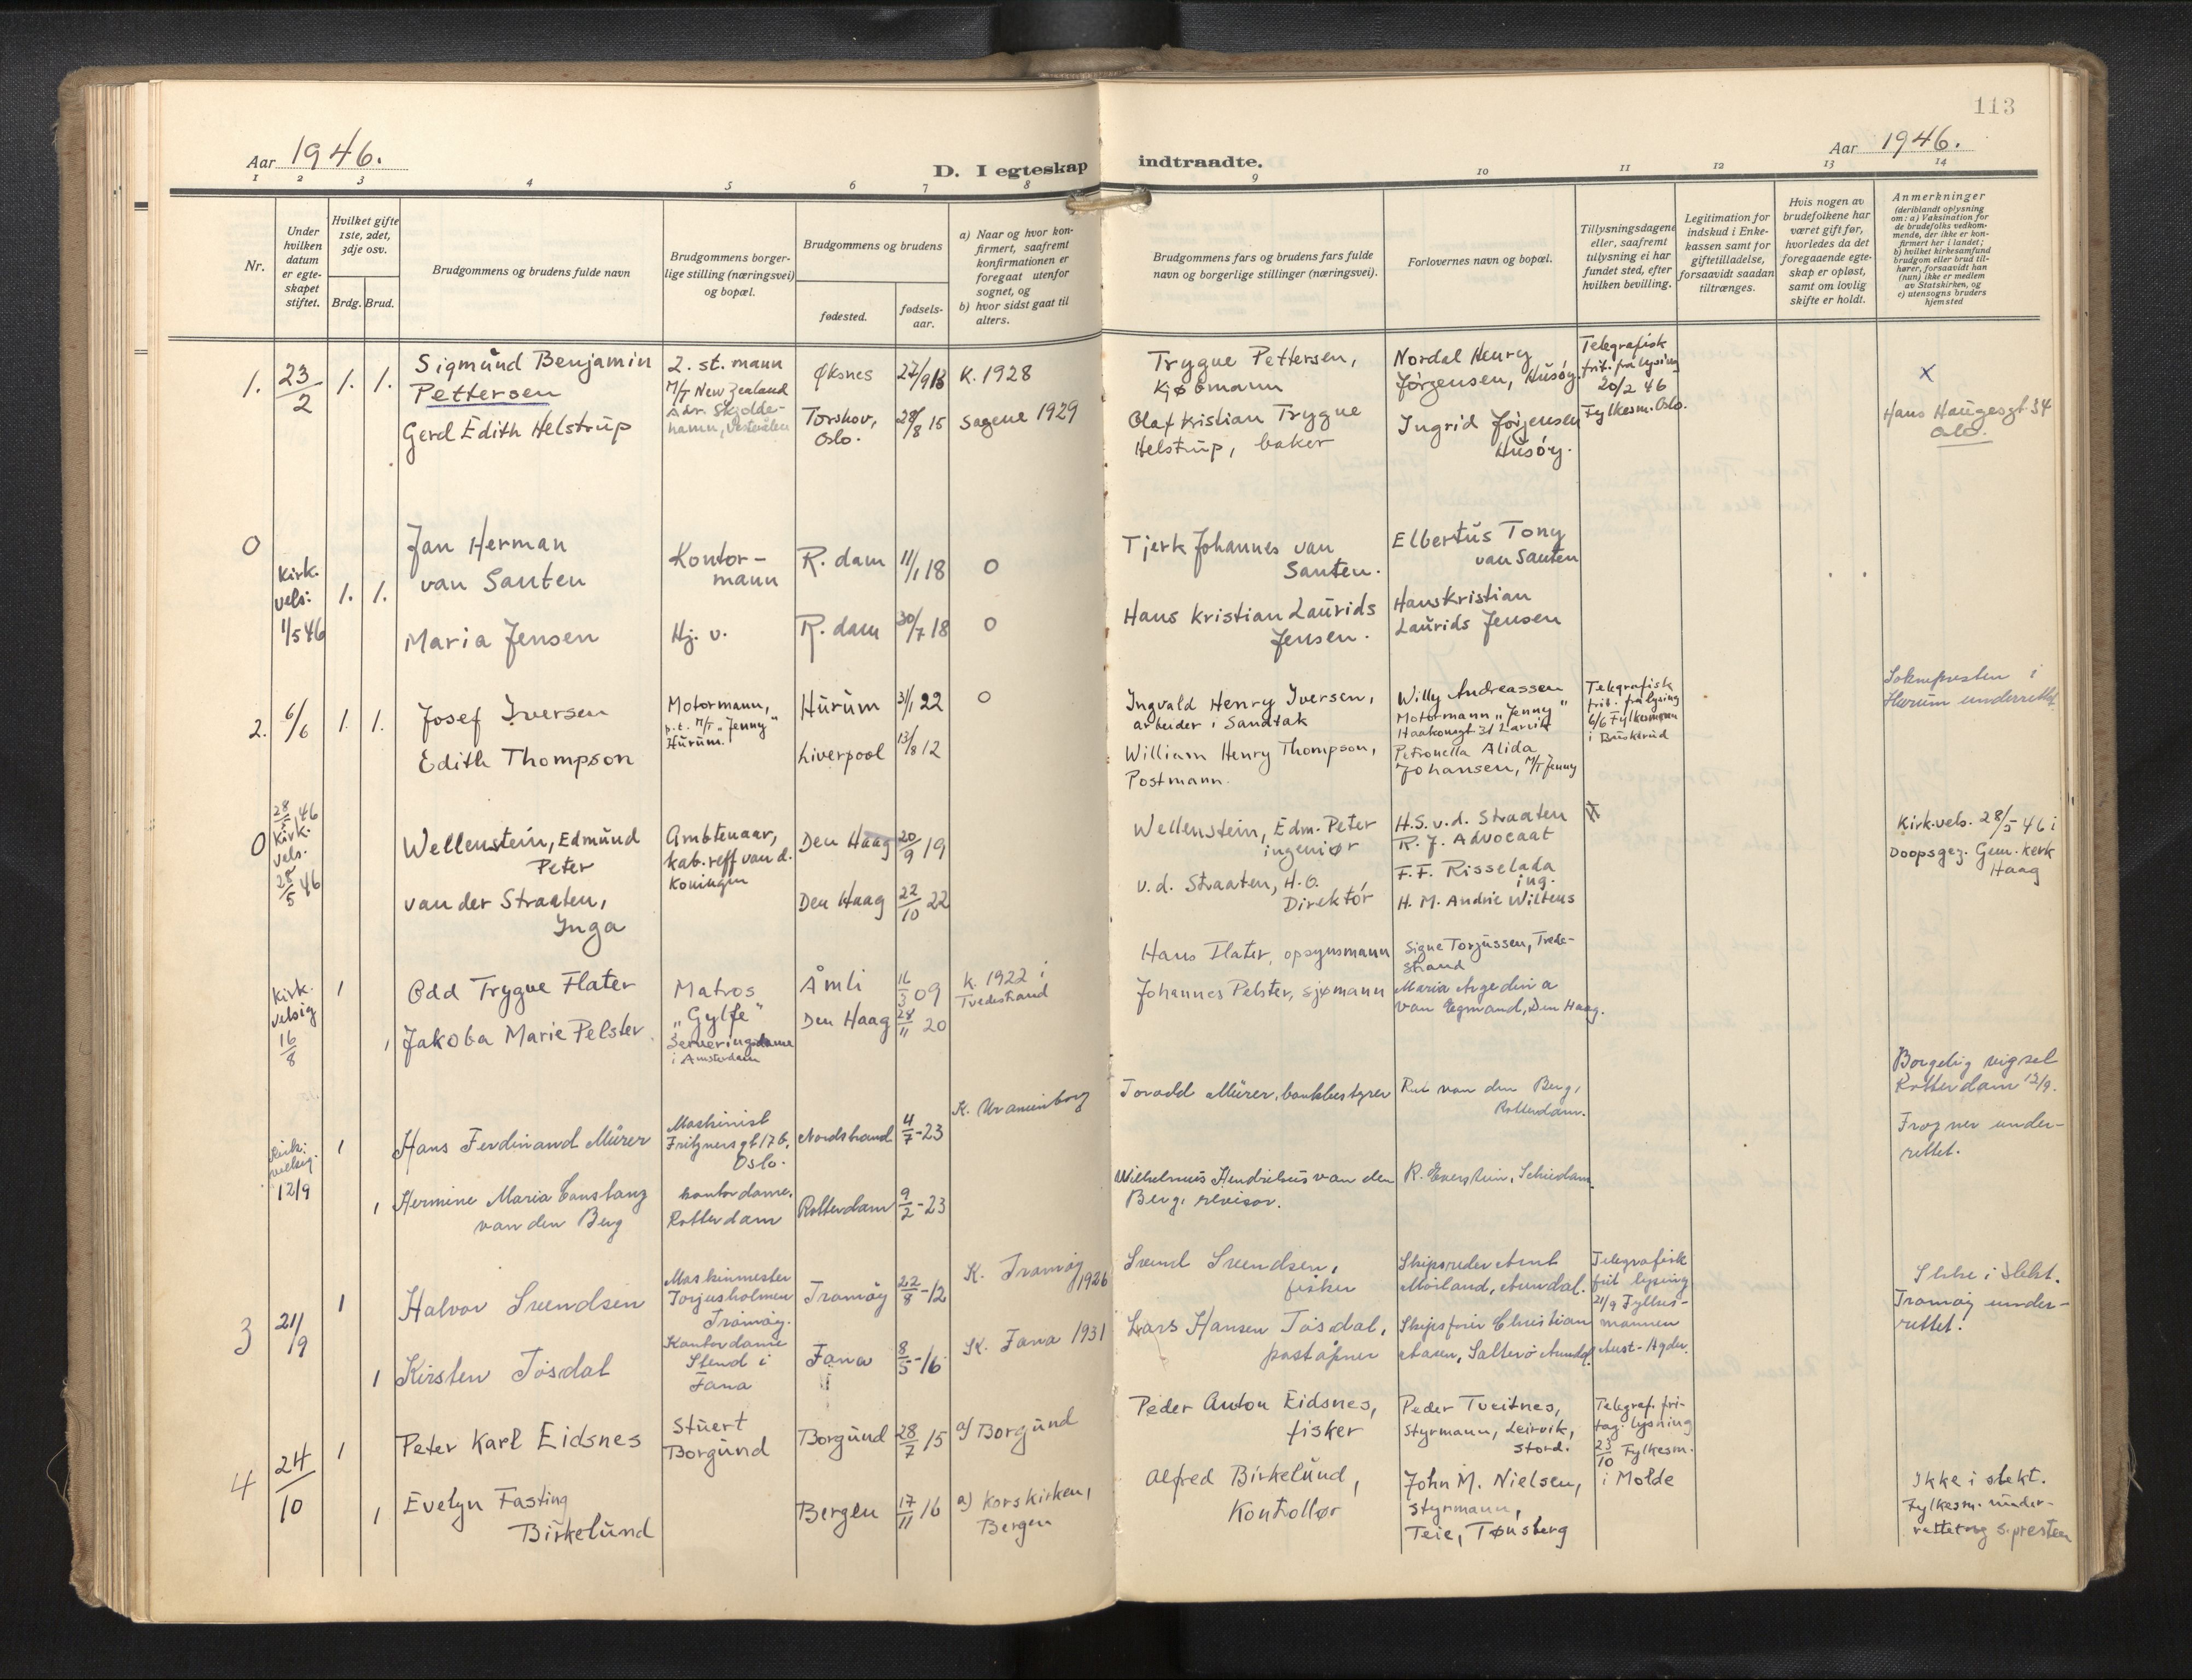 113
Aar 1946.
D. I egteskap indtraadte.
Aar 1946.
1 2 3 4 5 6 7 8 9 10 11 12 13 14
Nr.
Under
hvilken
datum
er egte-
skapet
stiftet.
Hvilket gifte
1ste, 2det,
3dje osv.
Brdg. Brud.
Brudgommens og brudens fulde navn
Brudgommens borger-
lige stilling (næringsvei)
og bopæl.
Brudgommens og brudens
fødested.
fødsels-
aar.
a) Naar og hvor kon-
firmert, saafremt
konfirmationen er
foregaat utenfor
sognet, og
b) hvor sidst gaat til
alters.
Brudgommens fars og brudens fars fulde
navn og borgerlige stillinger (næringsvei).
Forlovernes navn og bopæl.
Tillysningsdagene
eller, saafremt
tillysning ei har
fundet sted, efter
hvilken bevilling.
Legitimation for
indskud i Enke-
kassen samt for
giftetilladelse,
forsaavidt saadan
tiltrænges.
Hvis nogen av
brudefolkene har
været gift før,
hvorledes da det
foregaaende egte-
skap er opløst,
samt om lovlig
skifte er holdt.
Anmerkninger
(deriblandt oplysning
om: a) Vaksination for
de brudefolks vedkom-
mende, der ikke er kon-
firmert her i landet;
b) hvilket kirkesamfund
brudgom eller brud til-
hører, forsaavidt han
(hun) ikke er medlem
av Statskirken, og
c) utensogns bruders
hjemsted
1. 23/2 1. 1.
Sigmund Benjamin
Pettersen
Gerd Edith Helstrup
2. st. mann
M/T New Zealand
Adr. Skjolde-
hamn, Vesterålen
Øksnes
Torshov,
Oslo.
27/9 13
28/8 15
K. 1928
Sagene 1929
Trygve Pettersen,
kjøbmann
Olaf Kristian Trygve
Helstrup, baker
Nordal Henry
Jørgensen, Husøy.
Ingrid Jørgensen
Husøy.
Telegrafisk
frit. fra lysing
20/2 46
Fylkesm. Oslo.
x
Hans Haugesgt. 34
Oslo.
0
Kirk.
vels:
1/5 46
1. 1.
Jan Herman
van Santen
Maria Jensen
Kontor-
mann
Hj. v.
R. dam
R. dam
11/1 18
30/7 18
0
0
Tjerk Johannes van
Santen.
Hans Kristian Laurids
Jensen.
Elbertus Tony
van Santen
Hans Kristian
Laurids Jensen
2. 6/6 1. 1.
Josef Iversen
Edith Thompson
Motormann,
p.t. M/T "Jenny"
Hurum.
Hurum
Liverpool
31/1 22
13/8 12
0
Ingvald Henry Iversen,
arbeider i Sandtak
William Henry Thompson,
Postmann.
Willy Andreassen
Motormann "Jenny"
Haakonsgt 31 Larvik
Petronella Alida
Johansen, M/T Jenny
Telegrafisk
frit. fra lysing
6/6 Fylkesmann
i Buskerud
Soknepresten i
Hurum underrettet
0
28/5 46
Kirk.
vels.
28/5 46
Wellenstein, Edmund
Peter
van der Straaten,
Inga
Ambtenaar,
kab. reff van d.
Koningin
Den Haag
Den Haag
20/9 19
22/10 22
Wellenstein, Edm. Peter
ingeniør
v.d. Straaten, H.O.
Direktør
H.S. v.d. Straaten
R. J. Advocaat
F.F. Risselada
ing.
H. M. Andrie Wiltens
Kirk. vels. 28/5 46 i
Doopsgez. Gem. kerk
Haag
Kirk.
velsig
16/8
1
1
Odd Trygve Flater
Jakoba Marie Pelster
Matros
"Gylfe"
Serveringsdame
i Amsterdam
Åmli
Den Haag
16/3 09
28/11 20
K. 1922 i
Tvedestrand
Hans Flater, opsynsmann
Johannes Pelster, sjømann
Signe Torjussen, Tvede-
strand
Maria Argedina
van Egmond, Den Haag.
Kirk.
velsig.
12/9
1
1
Hans Ferdinand Mürer
Hermine Maria Constanz
van den Berg
Maskinist
Fritznersgt. 17 b.
Oslo.
kontordame.
Rotterdam
Nordstrand
Rotterdam
4/7-23
9/2-23
K. Uranienborg
Toradd Mürer, bankbestyrer
Wilhelmus Hendrikus van den
Berg, revisor.
van den Berg,
Rotterdam.
R. Everstein, Schiedam.
Borgelig vigsel
Rotterdam 12/9.
Frogner under-
rettet.
3 21/9
1
1
Halvor Svendsen
Kirsten Tøsdal
Maskinmester
Torjusholmen
Tromøy.
Kontordame
Stend i
Fana
Tromøy
Fana
22/8-12
8/5-16
K. Tromøy
1926
K. Fana 1931
Svend Svendsen,
fisker
Lars Hansen Tøsdal,
poståpner
Skipsreder Arnt
Mørland, Arendal.
Skipsfører Christian
Aasen, Salterø Arendal
Telegrafisk
frit. lysing
21/9 Fylkes-
mannen
Aust-Agder.
Ikke i slekt.
Tromøy under-
rettet.
4 24/10
1
1
Peter Karl Eidsnes
Evelyn Fasting
Birkelund
Stuert
Borgund
Borgund
Bergen
28/7 15
17/11 16
a) Borgund
a) Korskirken,
Bergen
Peder Anton Eidsnes,
fisker
Alfred Birkelund,
Kontrollør
Peder Tveitnes,
Styrmann, Leirvik,
Stord.
John M. Nielsen,
Styrmann,
Teie, Tønsberg
Telegraf. fri-
tag. lysning
23/10 Fylkesm.
i Molde
Ikke i slekt.
Fylkesm. under-
rettet og s.presten